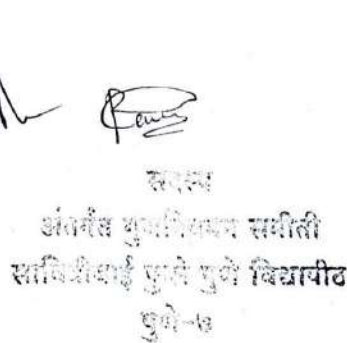 सदस्य
अंतर्गत गुणनियंत्रण समीती
सावित्रीबाई फुले पुणे विद्यापीठ
पुणे-७